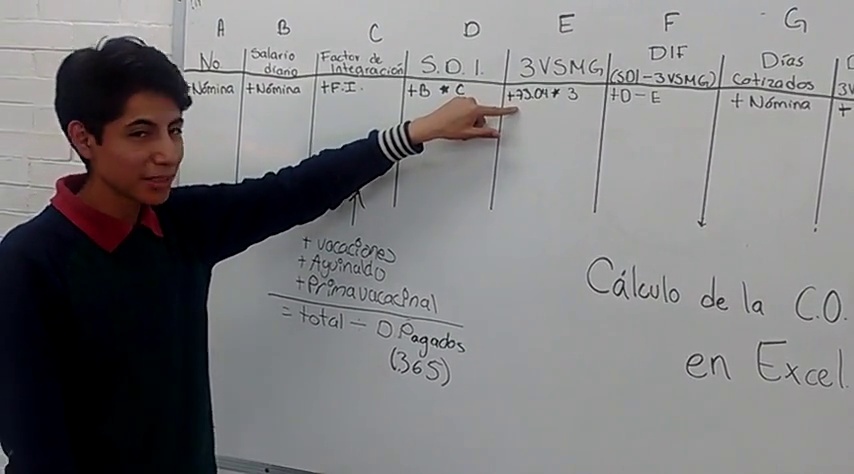 A B C D E F G
No Salario diario Factor de Integración S.D.I. 3VSMG DIF (SDI-3VSMG) Días Cotizados
+Nómina +Nómina +F.I. +B * C +73.04* 3 +D-E + Nómina +
+ vacaciones
+ Aguinaldo
+ Prima vacacional
= total ÷ D. Pagados
(365)
Cálculo de la C.O.
en Excel.